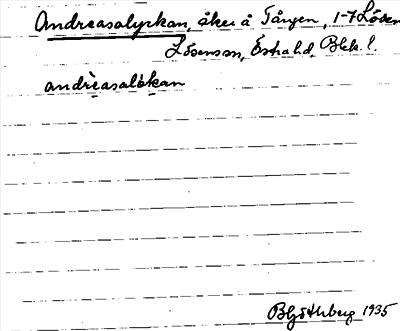 Andreasalyckan, åker å Tången, 1-7 Lösen
Lösens sn, Östra hd, Blek. l.
andrèasalỳkan
B Göthberg 1935